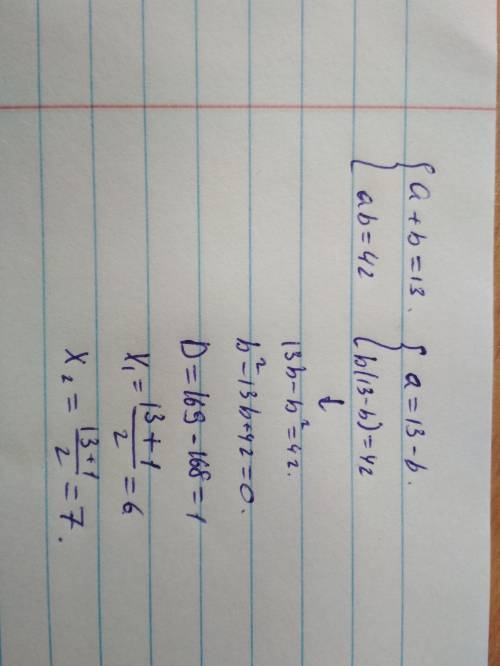 { a + b = 13. { a = 13 - b.
{ ab = 42 { b(13-b) = 42
↓
13b - b² = 42.
b² - 13b + 42 = 0.
D = 169 - 168 = 1
x₁ = (13 + 1)/2 = 6
x₂ = (13 + 1)/2 = 7.